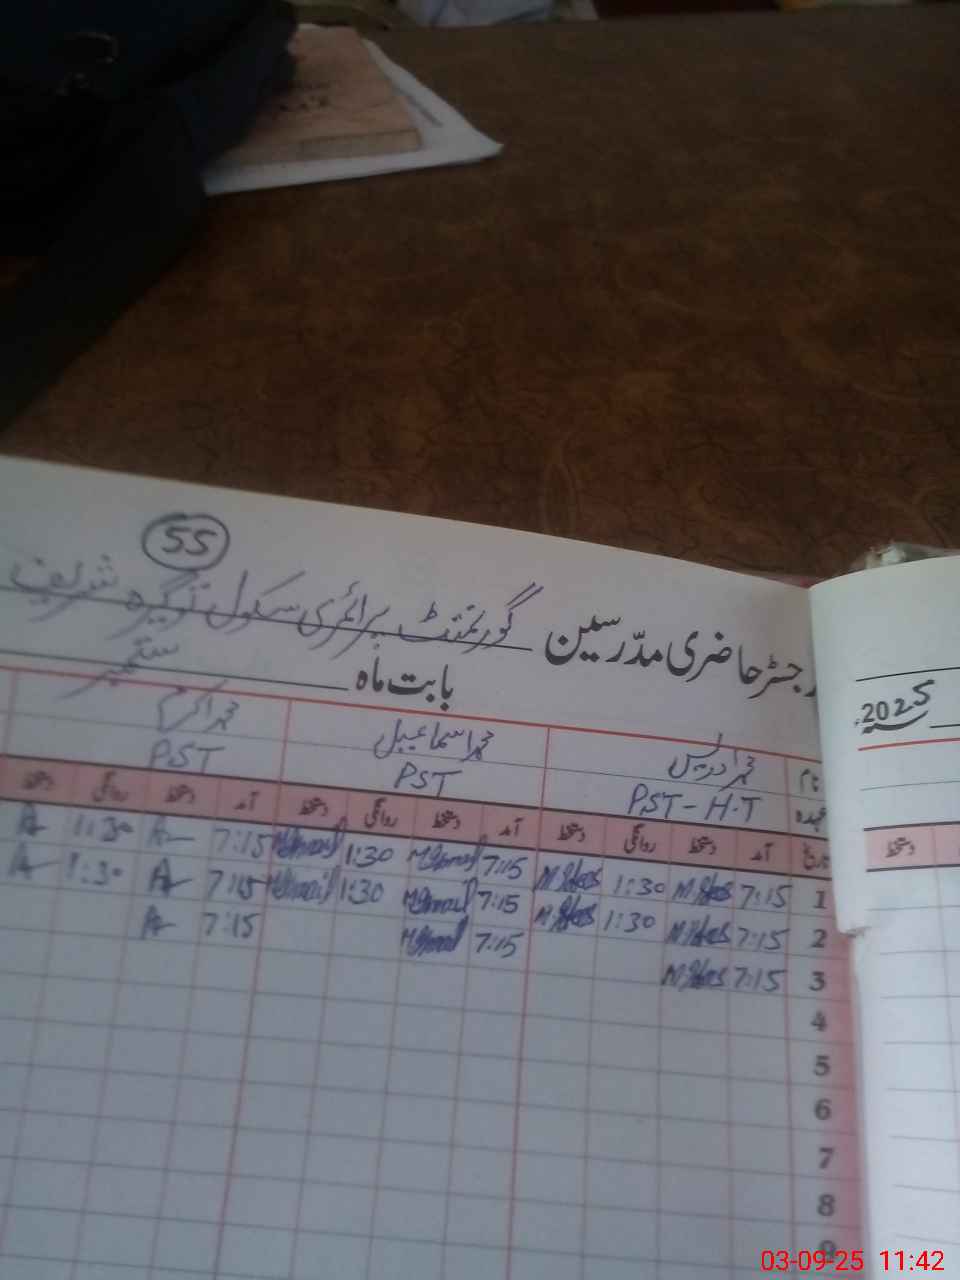 55
رجسٹر حاضری مدرّسین گورنمنٹ پرائمری سکول شریف
بابت ماہ ستمبر 2025
نام محمد ادریس محمد اسماعیل محمد اکرم
عہدہ PST-H.T PST PST
تاریخ آمد دستخط روانگی دستخط آمد دستخط روانگی دستخط آمد دستخط روانگی دستخط دستخط
1 7:15 1:30 7:15 1:30 7:15 1:30
2 7:15 1:30 7:15 1:30 7:15 1:30
3 7:15 7:15 7:15
4
5
6
7
8
9
03-09-25 11:42